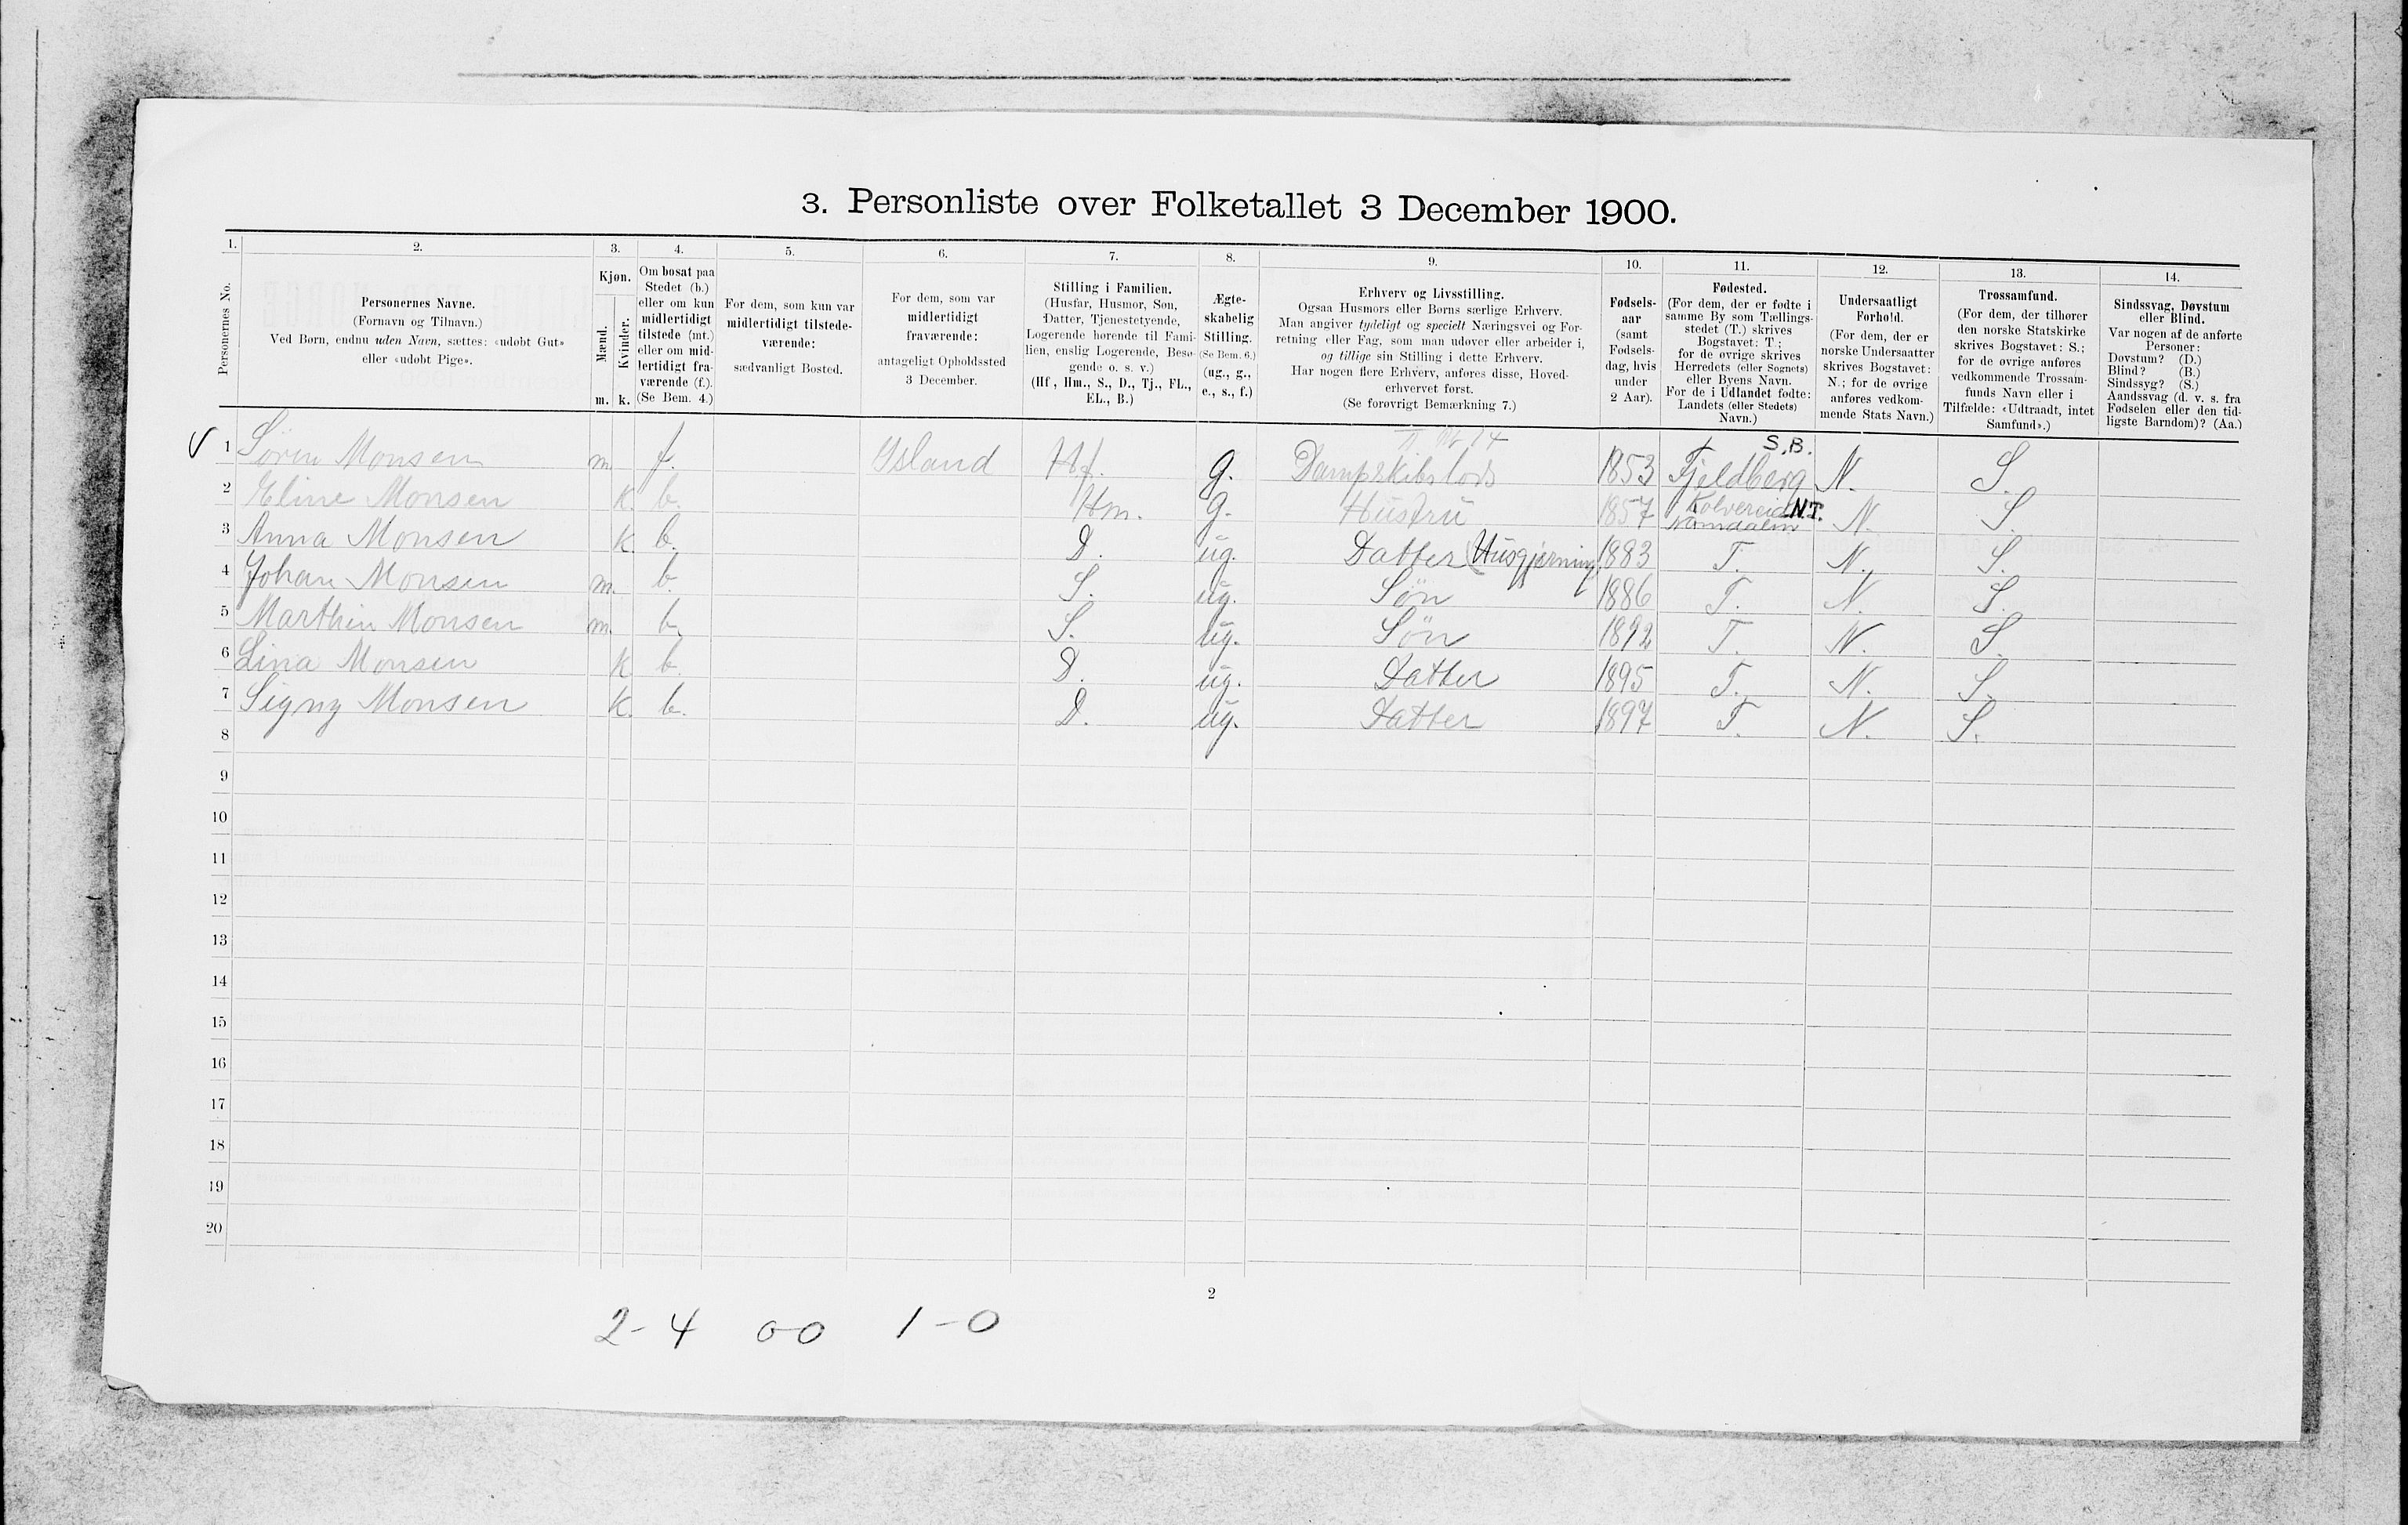 3. Personliste over Folketallet 3 December 1900.
1. 2. 3. 4. 5. 6. 7. 8. 9. 10. 11. 12. 13. 14.
Personernes No.
Personernes Navne.
(Fornavn og Tilnavn.)
Ved Børn, endnu uden Navn, sættes: «udøbt Gut»
eller «udøbt Pige».
Kjøn.
Mænd.
Kvinder.
m. k.
Om bosat paa
Stedet (b.)
eller om kun
midlertidigt
tilstede (mt.)
eller om mid-
lertidigt fra-
værende (f.).
(Se Bem. 4.)
For dem, som kun var
midlertidigt tilstede-
værende:
sædvanligt Bosted.
For dem, som var
midlertidigt
fraværende:
antageligt Opholdssted
3 December.
Stilling i Familien.
(Husfar, Husmor, Søn,
Datter, Tjenestetyende,
Logerende hørende til Fami-
lien, enslig Logerende, Besø-
gende o. s. v.)
(Hf., Hm., S., D., Tj., FL.,
EL., B.)
Ægte-
skabelig
Stilling.
(Se Bem. 6.)
(ug., g.,
e., s., f.)
Erhverv og Livsstilling.
Ogsaa Husmors eller Børns særlige Erhverv.
Man angiver tydeligt og specielt Næringsvei og For-
retning eller Fag, som man udøver eller arbeider i,
og tillige sin Stilling i dette Erhverv.
Har nogen flere Erhverv, anføres disse, Hoved-
erhvervet først.
(Se forøvrigt Bemærkning 7.)
Fødsels-
aar
(samt
Fødsels-
dag, hvis
under
2 Aar).
Fødested.
(For dem, der er fødte i
samme By som Tællings-
stedet (T.) skrives
Bogstavet: T.;
for de øvrige skrives
Herredets (eller Sognets)
eller Byens Navn.
For de i Udlandet fødte:
Landets (eller Stedets)
Navn.)
Undersaatligt
Forhold.
(For dem, der er
norske Undersaatter
skrives Bogstavet:
N.; for de øvrige
anføres vedkom-
mende Stats Navn.)
Trossamfund.
(For dem, der tilhører
den norske Statskirke
skrives Bogstavet: S.;
for de øvrige anføres
vedkommende Trossam-
funds Navn eller i
Tilfælde: «Udtraadt, intet
Samfund».)
Sindssvag, Døvstum
eller Blind.
Var nogen af de anførte
Personer:
Døvstum? (D.)
Blind? (B.)
Sindssyg? (S.)
Aandssvag (d. v. s. fra
Fødselen eller den tid-
ligste Barndom)? (Aa.)
S.B.
1 Sørin Monsen m. f. Ysland Hf. g. Dampskibslods 1853 Fjeldberg N. S.
2 Eline Monsen k. b. Hm. g. Hustru 1857 Kolvereid N.T. Namdalen N. S.
3 Anna Monsen k. b. D. ug. Datter (Husgjerning) 1883 T. N. S.
4 Johan Monsen m. b. S. ug. Søn 1886 T. N. S.
5 Marthin Monsen m. b. S. ug. Søn 1892 T. N. S.
6 Lina Monsen k b. D. ug. Datter 1895 T. N. S.
7 Signy Monsen k. b. D. ug. Datter 1897 T. N. S.
8
9
10
11
12
13
14
15
16
17
18
19
20
2
2-4 0-0 1-0